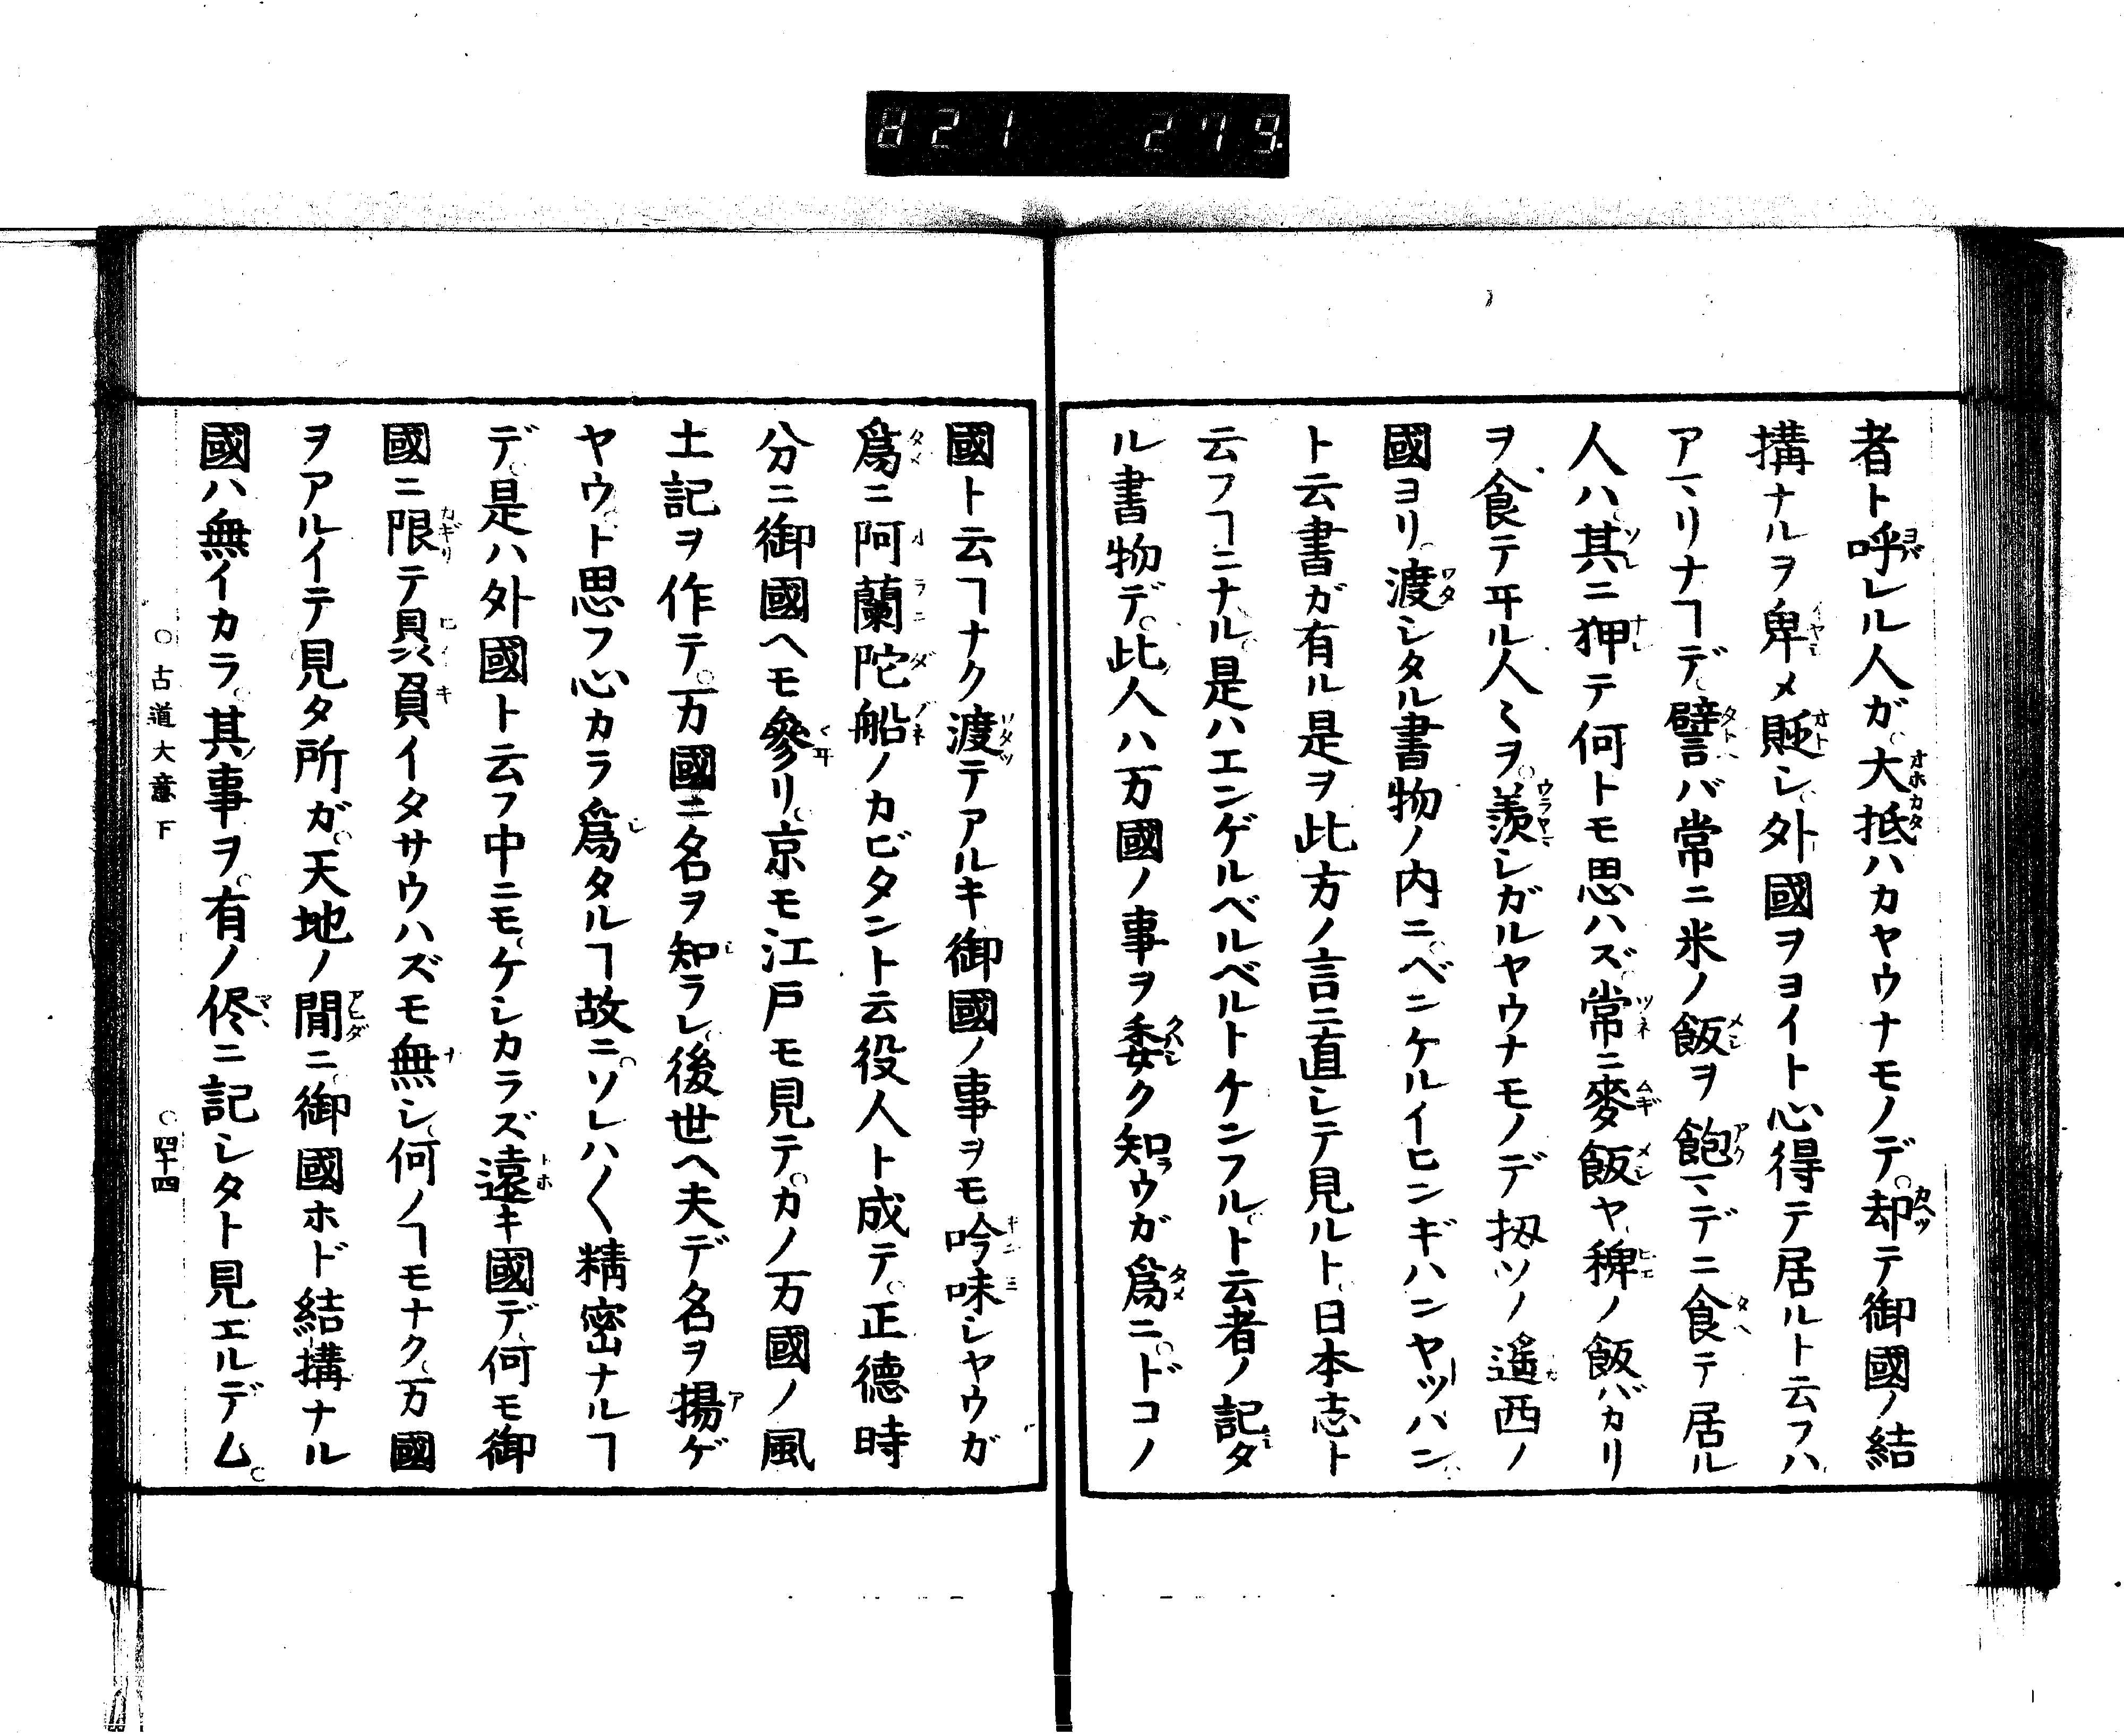 821 279.
者ト呼レル人ガ。大抵ハカヤウナモノデ。却テ御國ノ結
搆ナルヲ卑メ貶シ。外國ヲヨイト心得テ居ルト云フハ
アヽリナヿデ。譬バ常ニ米ノ飯ヲ飽ヽデニ食テ居ル
人ハ。其ニ狎テ何トモ思ハズ。常ニ麥飯ヤ。稗ノ飯バカリ
ヲ食テ㐄ル人〻ヲ。羨シガルヤウナモノデ扨ソノ遥西ノ
國ヨリ。渡シタル書物ノ内ニ。ベンケルイヒンギハンヤッハン。
ト云書ガ有ル是ヲ此方ノ言ニ直シテ見ルト。日本志ト
云フヿニナル。是ハエンゲルベルベルトケンフル。ト云者ノ記タ
ル書物デ。此人ハ万國ノ事ヲ委ク知ウガ爲ニ。ドコノ
國ト云ヿナク渡テアルキ御國ノ事ヲモ吟味シヤウガ
爲ニ阿蘭陀船ノカピタント云役人ト成テ。正德時
分ニ御國ヘモ參リ。京モ江戸モ見テ。カノ万國ノ風
土記ヲ作テ。万國ニ名ヲ知ラレ。後世ヘ夫デ名ヲ揚ゲ
ヤウト思フ心カラ爲タルヿ故ニ。ソレハ〱精密ナルヿ
デ。是ハ外國ト云フ中ニモ。ケシカラズ遠キ國デ。何モ御
國ニ限テ贔屓イタサウハズモ無シ。何ノヿモナク。万國
ヲアルイテ見タ所ガ。天地ノ間ニ。御國ホド結搆ナル
國ハ無イカラ。其事ヲ。有ノ侭ニ記シタト見エルデム。
○古道大意下 ○四十四